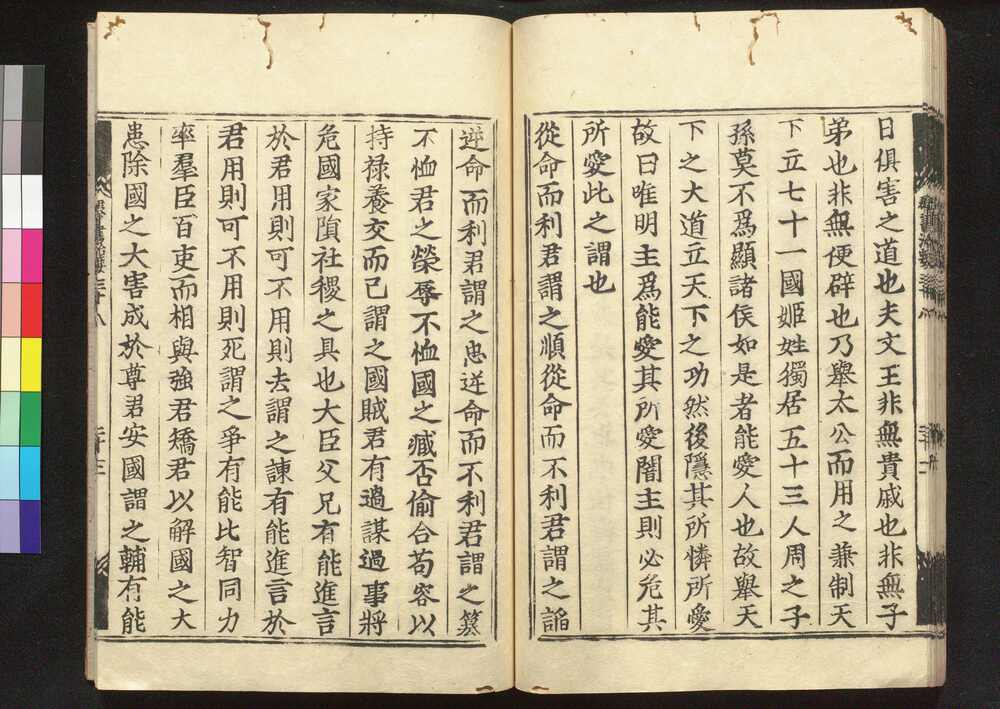 日俱害之道也夫文王非無貴戚也非無子
弟也非無便辟也乃舉太公而用之兼制天
下立七十一國姬姓獨居五十三人周之子
孫莫不爲顯諸侯如是者能愛人也故舉天
下之大道立天下之功然後隱其所憐所愛
故曰唯明主爲能愛其所愛闇主則必危其
所愛此之謂也
從命而利君謂之順從命而不利君謂之謟
逆命而利君謂之忠逆命而不利君謂之篡
不恤君之榮辱不恤國之臧否偷合苟容以
持祿養交而已謂之國賊君有過謀過事將
危國家隕社稷之具也大臣父兄有能進言
於君用則可不用則去謂之諫有能進言於
君用則可不用則死謂之爭有能比智同力
率羣臣百吏而相與強君矯君以解國之大
患除國之大害成於尊君安國謂之輔有能
羣書治要三十八
二十三